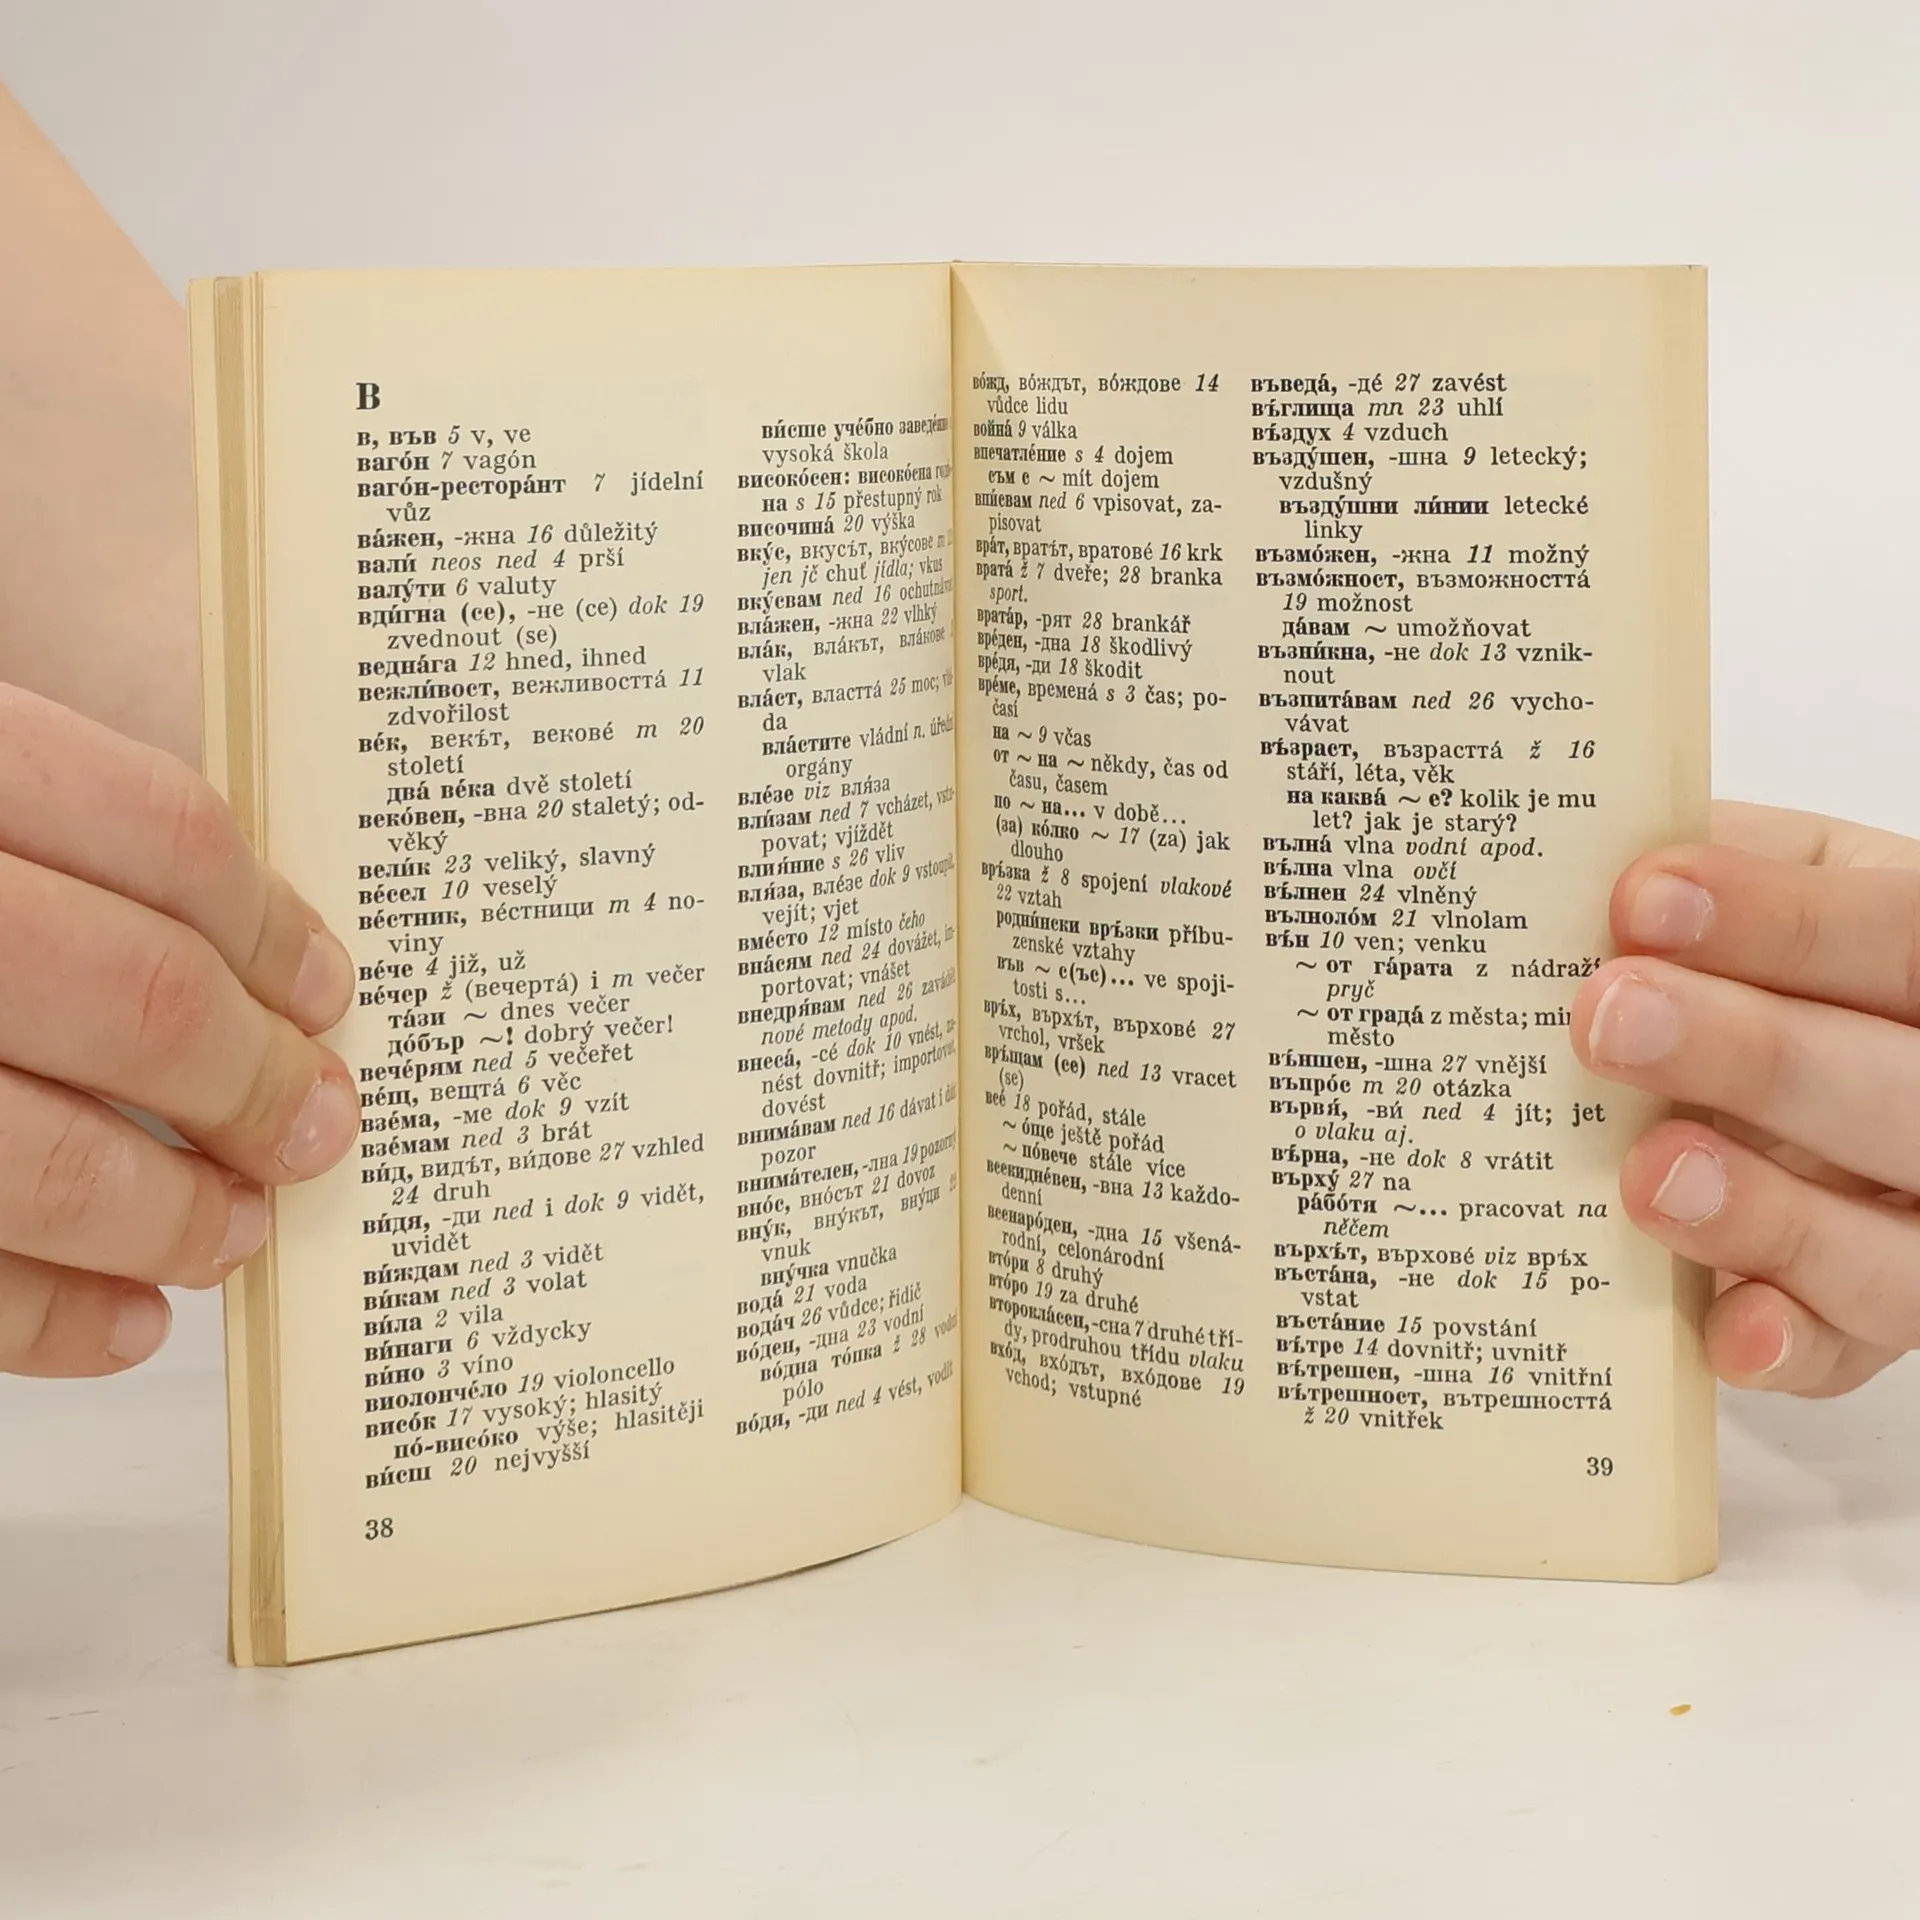 В
в, във 5 v, ve
вагóн 7 vagón
вагóн-ресторáнт 7 jídelní
vůz
вáжен, -жна 16 důležitý
валú neos ned 4 prší
валýти 6 valuty
вдúгна (се), -не (се) dok 19
zvednout (se)
веднáга 12 hned, ihned
вежлúвост, вежливосттá 11
zdvořilost
вéк, векъ́т, вековé m 20
století
двá вéка dvě století
векóвен, -вна 20 staletý; od-
věký
велúк 23 veliký, slavný
вéсел 10 veselý
вéстник, вéстници m 4 no-
viny
вéче 4 již, už
вéчер ž (вечертá) i m večer
тáзи ~ dnes večer
дóбър ~! dobrý večer!
вечéрям ned 5 večeřet
вéщ, вещтá 6 věc
взéма, -ме dok 9 vzít
взéмам ned 3 brát
вúд, видъ́т, вúдове 27 vzhled
24 druh
вúдя, -ди ned i dok 9 vidět,
uvidět
вúждам ned 3 vidět
вúкам ned 3 volat
вúла 2 vila
вúнаги 6 vždycky
вúно 3 víno
виолончéло 19 violoncello
висóк 17 vysoký; hlasitý
пó-висóко výše; hlasitěji
вúсш 20 nejvyšší
38
вúсше учéбно
vysoká škola
високóсен: високóсна
на s 15 přestupný rok
височинá 20 výška
вкýс, вкусъ́т, вкýсове m
jen jč chuť jídla; vkus
вкýсвам ned 16
влáжен, -жна 22 vlhký
влáк, влáкът, влáкове
vlak
влáст, власттá 25 moc;
da
влáстите vládní n.
orgány
влéзе viz вля́за
влúзам ned 7 vcházet,
povat; vjíždět
влия́ние s 26 vliv
вля́за, влéзе dok 9 vstoupit,
vejít; vjet
вмéсто 12 místo čeho
внáсям ned 24 dovážet, im-
portovat; vnášet
внедря́вам ned 26
nové metody apod.
внесá, -сé dok 10 vnést,
nést dovnitř; importovat,
dovést
внимáвам ned 16 dávat i
pozor
внимáтелен, -лна 19 pozorný
внóс, внóсът 21 dovoz
внýк, внýкът, внýци
vnuk
внýчка vnučka
водá 21 voda
водáч 26 vůdce; řidič
вóден, -дна 23 vodní
вóдна тóпка ž 28 vodní
pólo
вóдя, -ди ned 4 vést, vodit
вóжд, вóждът, вóждове 14
vůdce lidu
войнá 9 válka
впечатлéние s 4 dojem
съм с ~ mít dojem
впúсвам ned 6 vpisovat, za-
pisovat
врáт, вратъ́т, вратовé 16 krk
вратá ž 7 dveře; 28 branka
sport.
вратáр, -рят 28 brankář
врéден, -дна 18 škodlivý
вредя́, -ди 18 škodit
врéме, временá s 3 čas; po-
časí
на ~ 9 včas
от ~ на ~ někdy, čas od
času, časem
по ~ на... v době...
(за) кóлко ~ 17 (za) jak
dlouho
връ́зка ž 8 spojení vlakové
22 vztah
роднúнски връ́зки příbu-
zenské vztahy
във ~ с(ъс)... ve spoji-
tosti s...
връ́х, върхъ́т, върховé 27
vrchol, vršek
връ́щам (се) ned 13 vracet
(se)
всé 18 pořád, stále
~ óще ještě pořád
~ пóвече stále více
всекиднéвен, -вна 13 každo-
denní
всенарóден, -дна 15 všená-
rodní, celonárodní
втóри 8 druhý
втóро 19 za druhé
второклáсен, -сна 7 druhé tří-
dy, prodruhou třídu vlaku
вхóд, вхóдът, вхóдове 19
vchod; vstupné
въведá, -дé 27 zavést
въ́глища mn 23 uhlí
въ́здух 4 vzduch
въздýшен, -шна 9 letecký;
vzdušný
въздýшни лúнии letecké
linky
възмóжен, -жна 11 možný
възмóжност, възможносттá
19 možnost
дáвам ~ umožňovat
възнúкна, -не dok 13 vznik-
nout
възпитáвам ned 26 vycho-
vávat
въ́зраст, възрасттá ž 16
stáří, léta, věk
на каквá ~ е? kolik je mu
let? jak je starý?
вълнá vlna vodní apod.
въ́лна vlna ovčí
въ́лнен 24 vlněný
вълнолóм 21 vlnolam
въ́н 10 ven; venku
~ от гáрата z nádraží
pryč
~ от градá z města;
město
въ́ншен, -шна 27 vnější
въпрóс m 20 otázka
вървя́, -вú ned 4 jít; jet
o vlaku aj.
въ́рна, -не dok 8 vrátit
върхý 27 na
рáбóтя ~... pracovat na
něčem
върхъ́т, върхове viz връ́х
въстáна, -не dok 15 po-
vstat
въстáние 15 povstání
въ́тре 14 dovnitř; uvnitř
въ́трешен, -шна 16 vnitřní
въ́трешност, вътрешносттá
ž 20 vnitřek
39